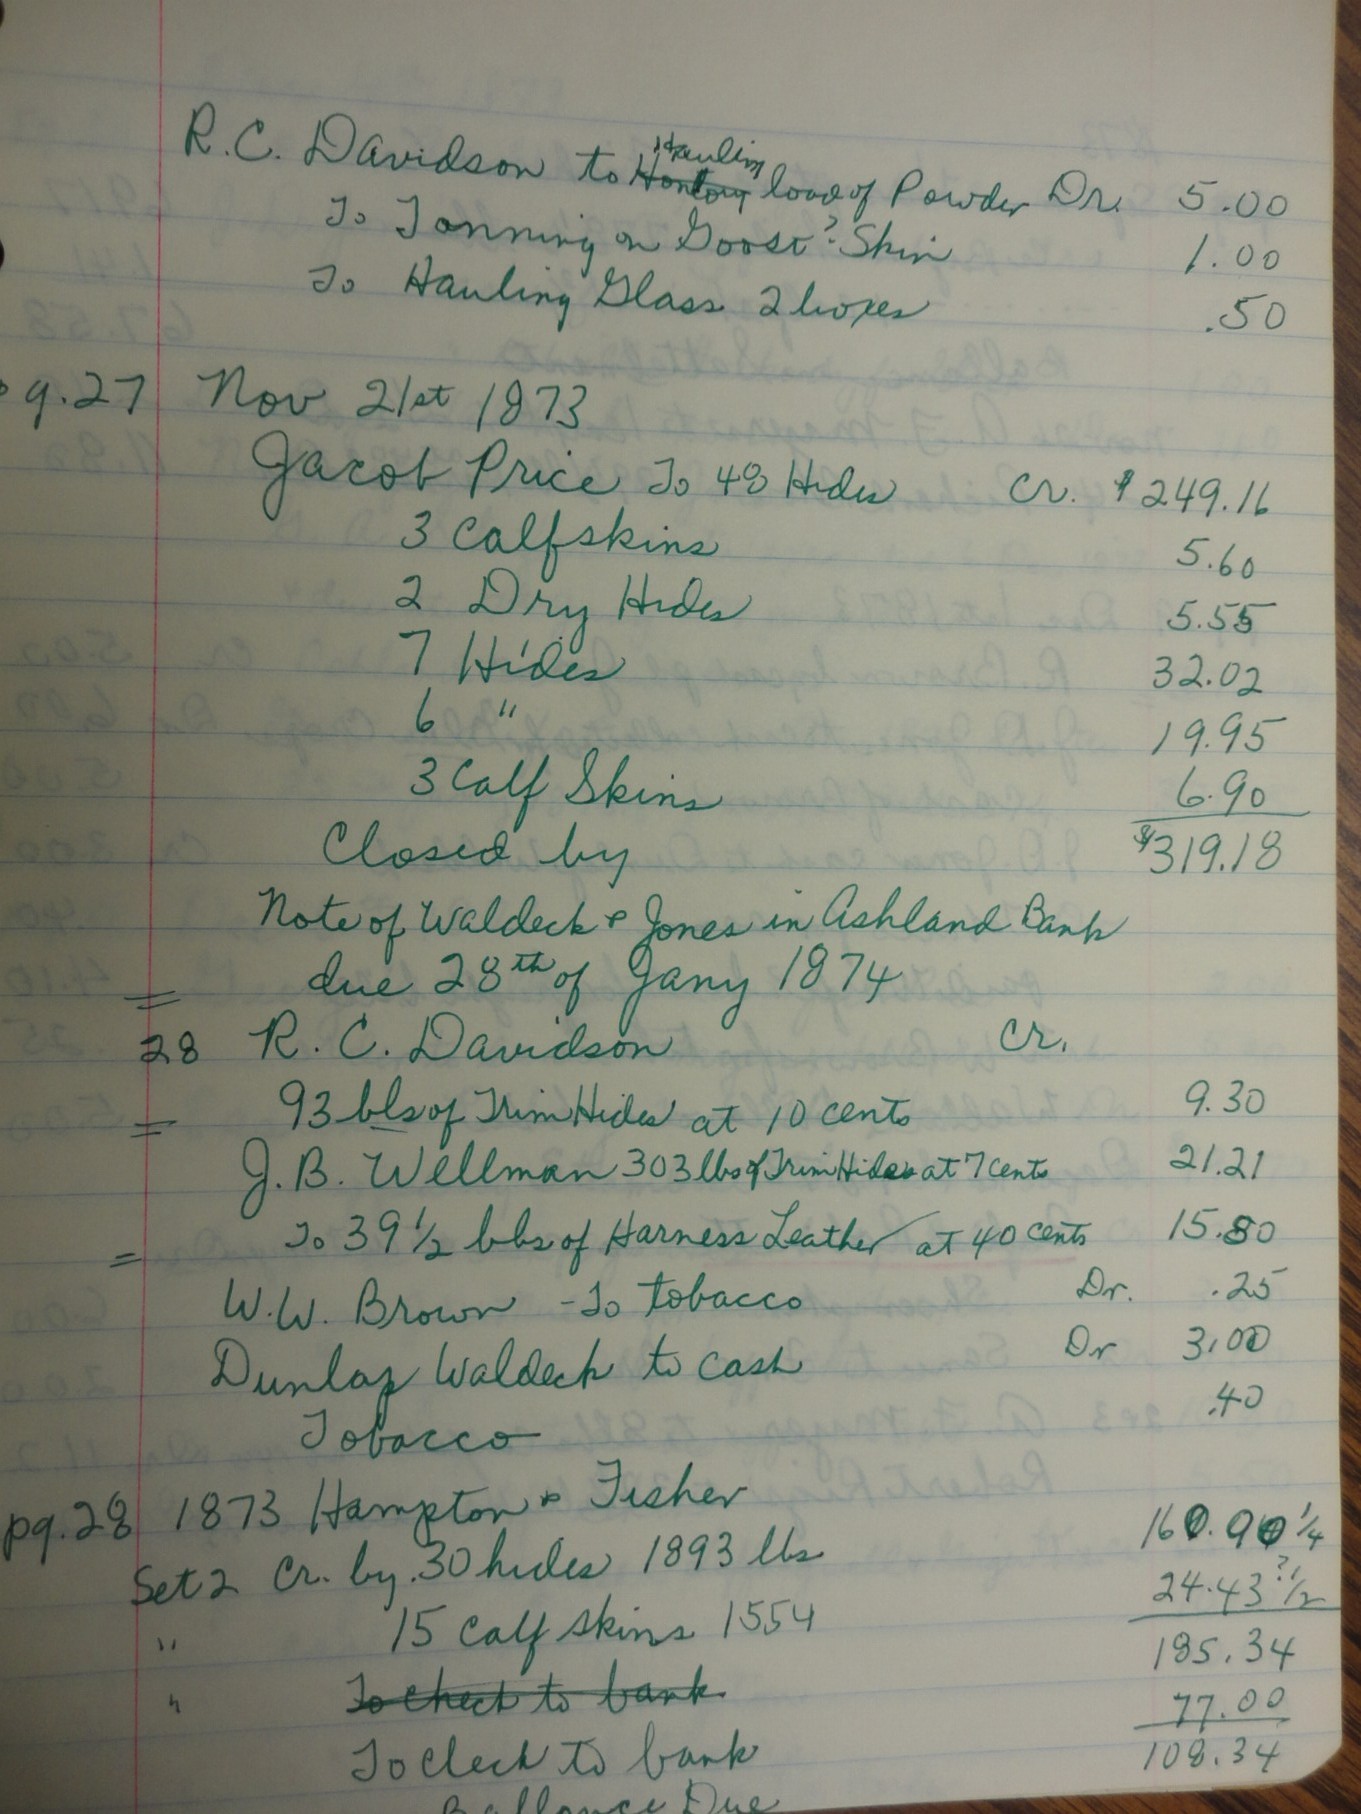 R.C. Davidson to Hauling load of Powder Dr. 5.00
To Tanning on Goost? Skin 1.00
To Hauling Glass 2 boxes .50
pg.27 Nov 21st 1873
Jacob Price To 48 Hides Cr. $249.16
3 Calfskins 5.60
2 Dry Hides 5.55
7 Hides 32.02
6 " 19.95
3 Calf Skins 6.90
Closed by $319.18
Note of Waldeck & Jones in Ashland Bank
due 28th of Jany 1874
28 R. C. Davidson Cr.
93 bls of Trim Hides at 10 cents 9.30
J.B. Wellman 303 lbs of Trim Hides at 7 cents 21.21
To 39 1/2 bbs of Harness Leather at 40 cents 15.80
W.W. Brown - To tobacco Dr. .25
Dunlap Waldeck to cash Dr 3.00
Tobacco .40
pg.28 1873 Hampton & Fisher
Set 2 Cr. by. 30 hides 1893 lbs 160.90 1/4
" 15 Calf skins 1554 24.43 ? 1/2
185.34
" To check to bank 77.00
To Check to bank 108.34
Ballance Due